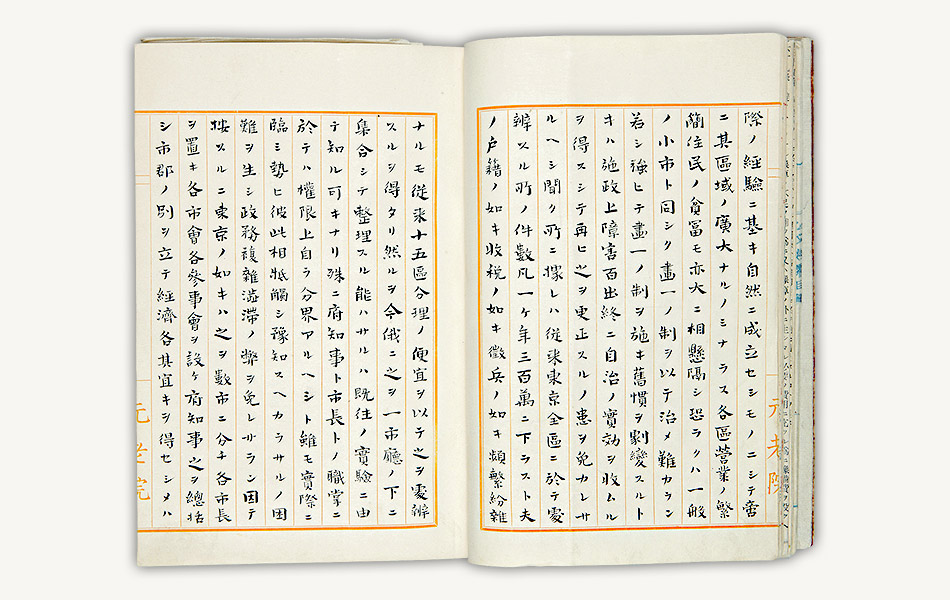 際ノ經驗ニ基キ自然ニ成立セシモノニシテ啻
ニ其區域ノ廣大ナルノミナラス各區營業ノ繁
簡住民ノ貧冨モ亦大ニ相懸隔シ恐ラクハ一般
ノ小市ト同シク畫一ノ制ヲ以テ治メ難カラン
若シ強ヒテ畫一ノ制ヲ施キ舊慣ヲ劇變スルト
キハ施政上障害百出終ニ自治ノ實効ヲ收ムル
ヲ得スシテ再ヒ之ヲ更正スルノ患ヲ免カレサ
ルヘシ聞ク所ニ據レハ從来東京全區ニ於テ處
辨スル所ノ件數凡一ケ年三百萬ニ下ラスト夫
ノ戸籍ノ如キ收税ノ如キ徴兵ノ如キ頻繁紛雜
ナルモ從来十五區分理ノ便宜ヲ以テ之ヲ處辨
スルヲ得タリ然ルヲ今俄ニ之ヲ一市廳ノ下ニ
集合シテ整理スル能ハサルハ既徃ノ實驗ニ由
テ知ル可キナリ殊ニ府知事ト市長トノ職掌ニ
於テハ權限上自ラ分界アルヘシト雖モ實際ニ
臨ミ勢ヒ彼此相牴觸シ豫知スヘカラサルノ困
難ヲ生シ政務複雜澁滞ノ弊ヲ免レサラン因テ
按スルニ東京ノ如キハ之ヲ數市ニ分チ各市長
ヲ置キ各市會各參事會ヲ設ケ府知事之ヲ總括
シ市郡ノ別ヲ立テ經濟各其宜キヲ得セシメハ
元老院
元老院